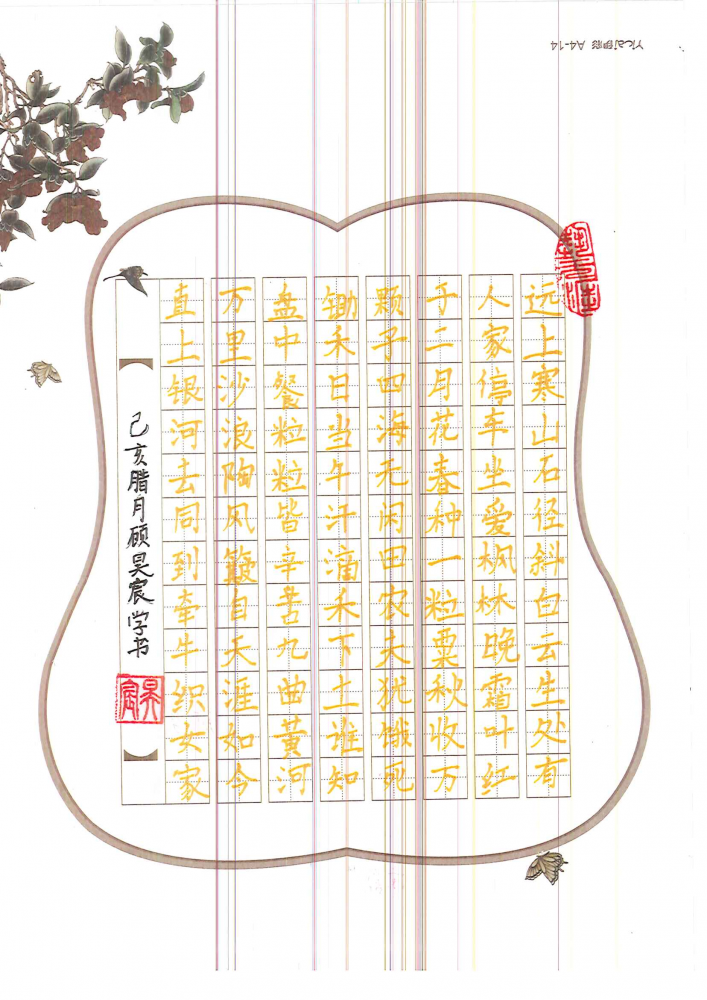 Yicai伊彩 A4-14
远上寒山石径斜白云生处有
人家停车坐爱枫林晚霜叶红
于二月花春种一粒粟秋收万
颗子四海无闲田农夫犹饿死
锄禾日当午汗滴禾下土谁知
盘中餐粒粒皆辛苦九曲黄河
万里沙浪陶风簸自天涯如今
直上银河去同到牵牛织女家
己亥腊月顾昊宸学书
昊宸